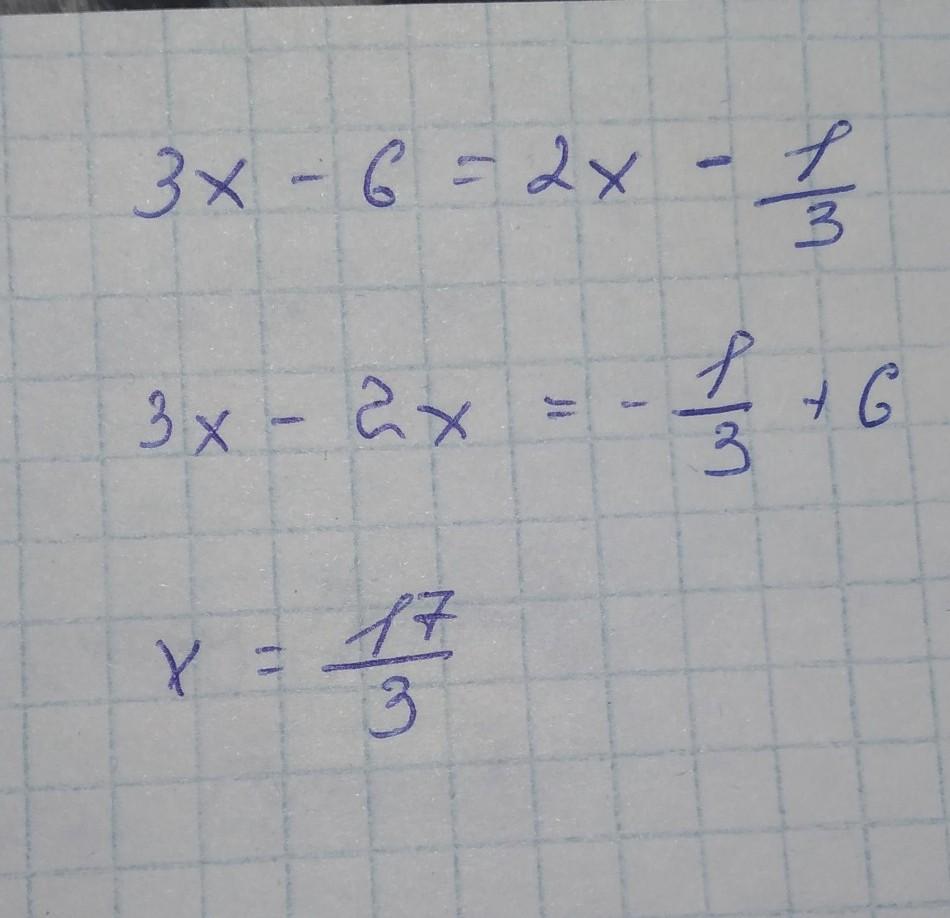 3x - 6 = 2x - 1/3
3x - 2x = - 1/3 + 6
x = 17/3